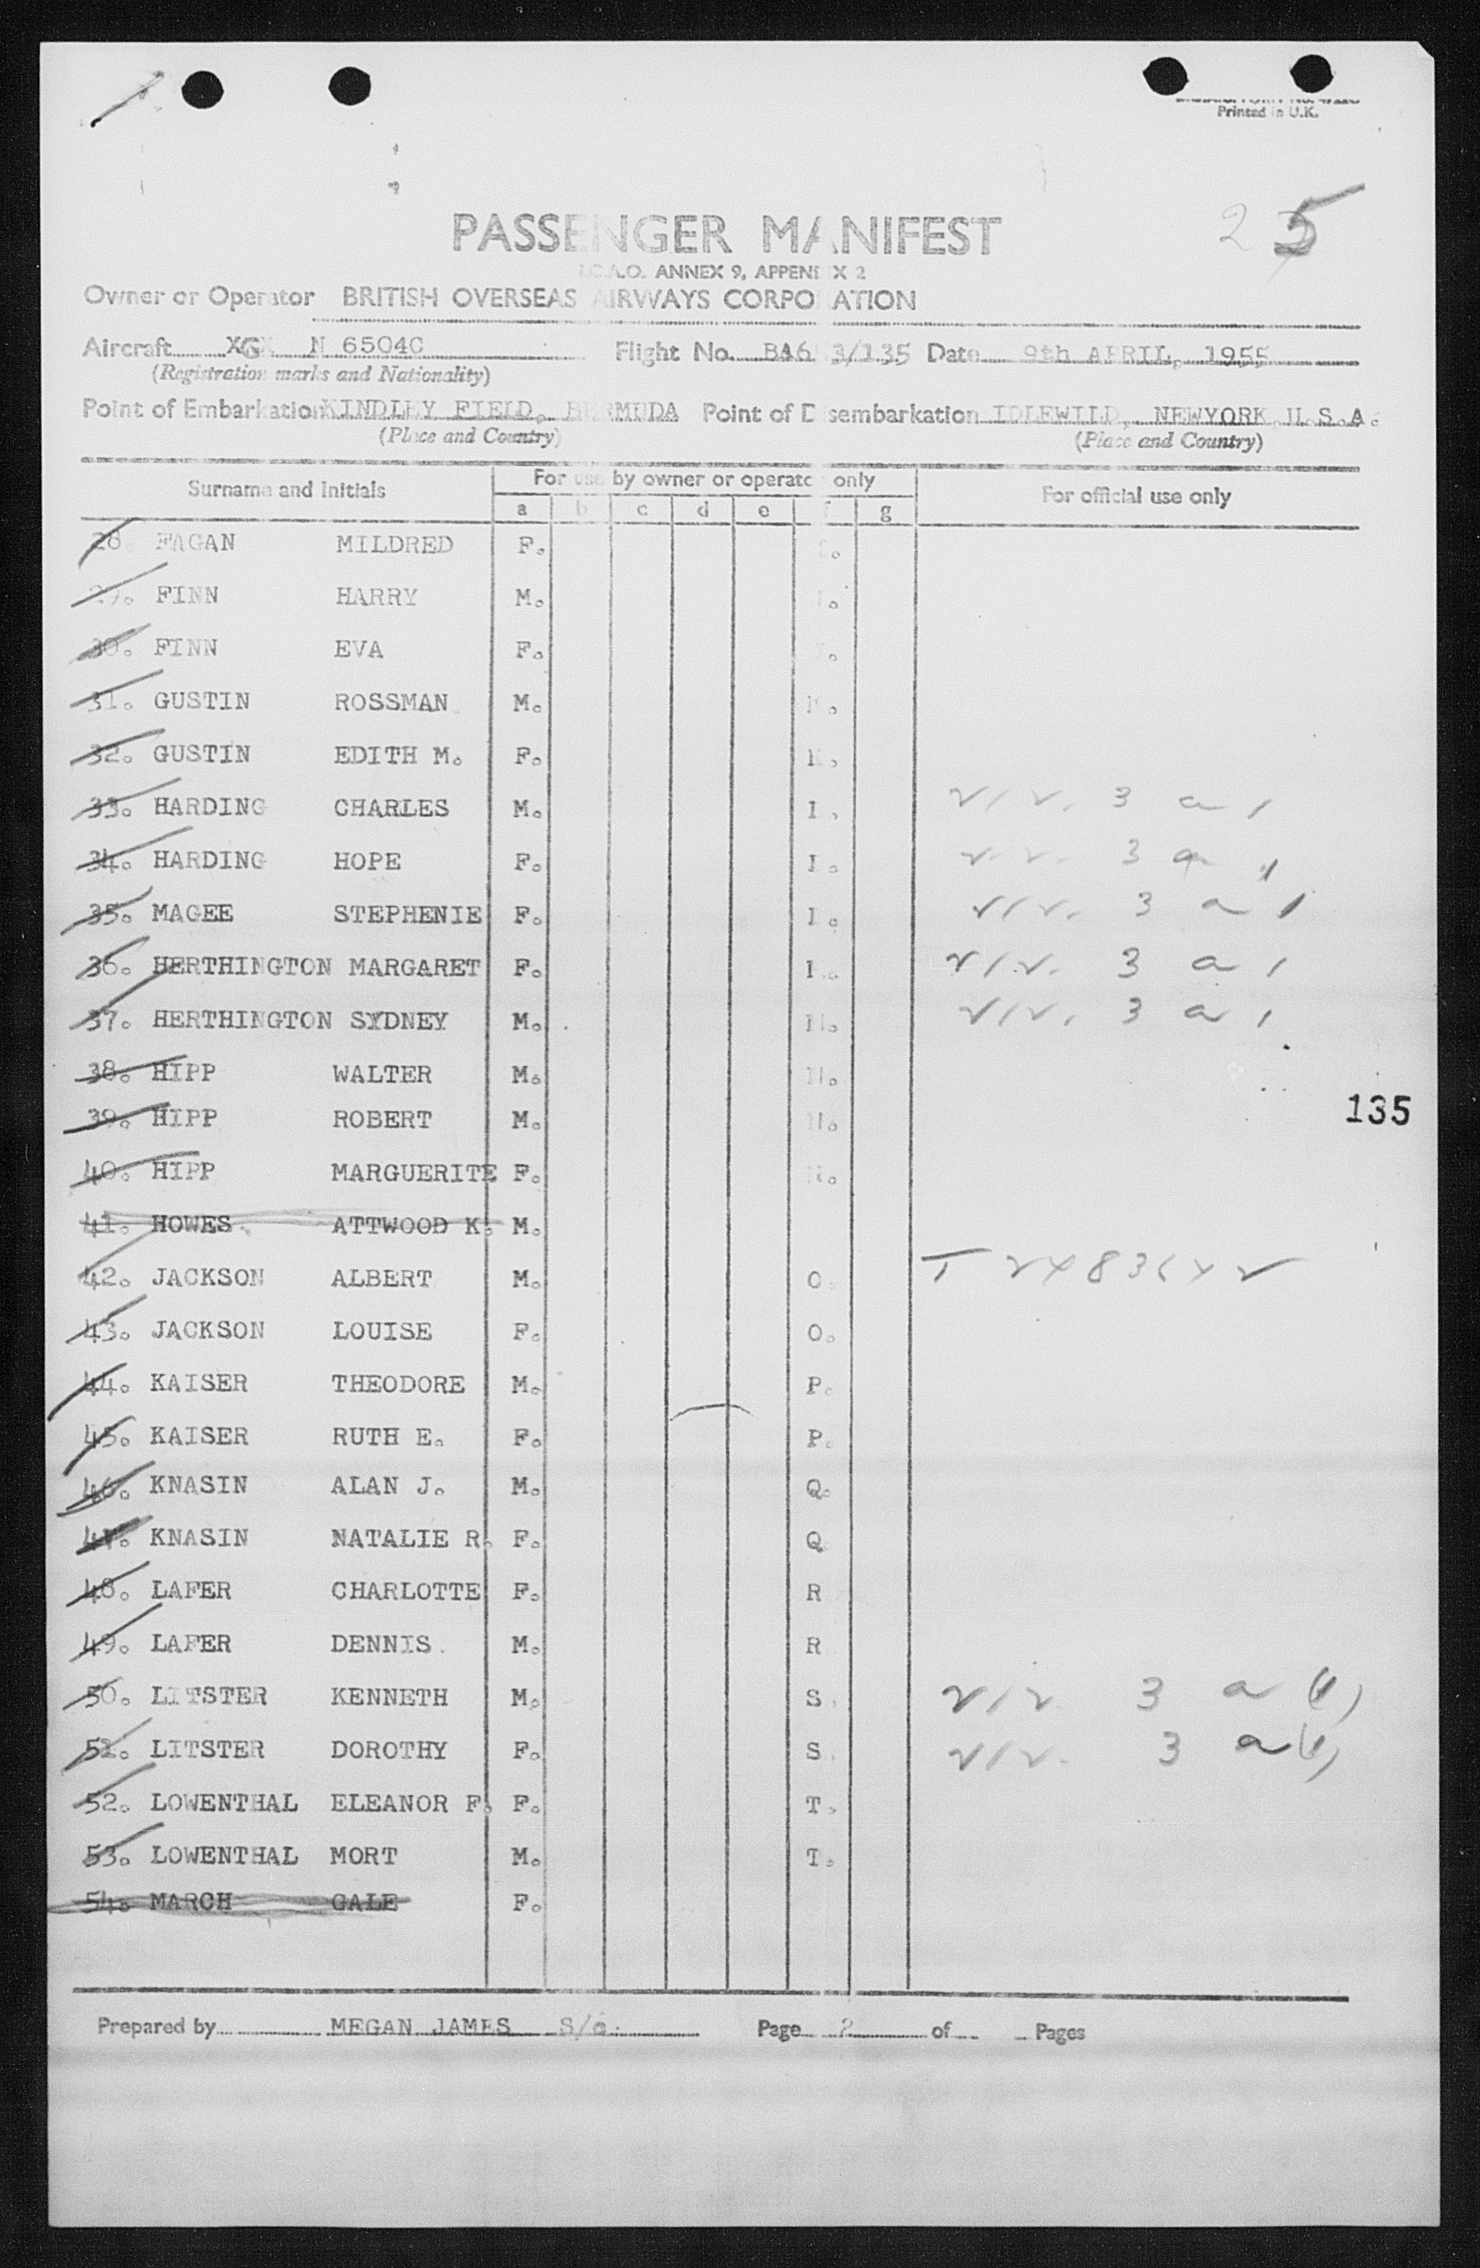 Printed in U.K.
25
PASSENGER MANIFEST
I.C.A.O. ANNEX 9, APPENDIX 2
Owner or Operator BRITISH OVERSEAS AIRWAYS CORPORATION
Aircraft N 6504C Flight No. BA6 3/135 Date 9th APRIL, 1955
(Registration marks and Nationality)
Point of Embarkation KINDLEY FIELD, BERMUDA Point of Disembarkation IDLEWILD, NEWYORK U.S.A.
(Place and Country) (Place and Country)
Surname and Initials For use by owner or operator only For official use only
a b c d e f g
28. FAGAN MILDRED F.
29. FINN HARRY M.
30. FINN EVA F.
31. GUSTIN ROSSMAN M.
32. GUSTIN EDITH M. F. K.
33. HARDING CHARLES M. L. 3 a 1
34. HARDING HOPE F. L. 3 a 1
35. MAGEE STEPHENIE F. L. 3 a 1
36. HERTHINGTON MARGARET F. 3 a 1
37. HERTHINGTON SYDNEY M. 3 a 1
38. HIPP WALTER M. N.
39. HIPP ROBERT M. N.
135
40. HIPP MARGUERITE F. N.
41. HOWES ATTWOOD K. M.
42. JACKSON ALBERT M. O.
43. JACKSON LOUISE F. O.
44. KAISER THEODORE M. P.
45. KAISER RUTH E. F. P.
46. KNASIN ALAN J. M. Q.
47. KNASIN NATALIE R. F. Q
48. LAFER CHARLOTTE F. R
49. LAFER DENNIS. M. R
50. LITSTER KENNETH M. S. 3 a (1)
51. LITSTER DOROTHY F. S. 3 a (1)
52. LOWENTHAL ELEANOR F. F. T.
53. LOWENTHAL MORT M. T.
54. MARCH GALE F.
Prepared by MEGAN JAMES S/s. Page 2 of Pages